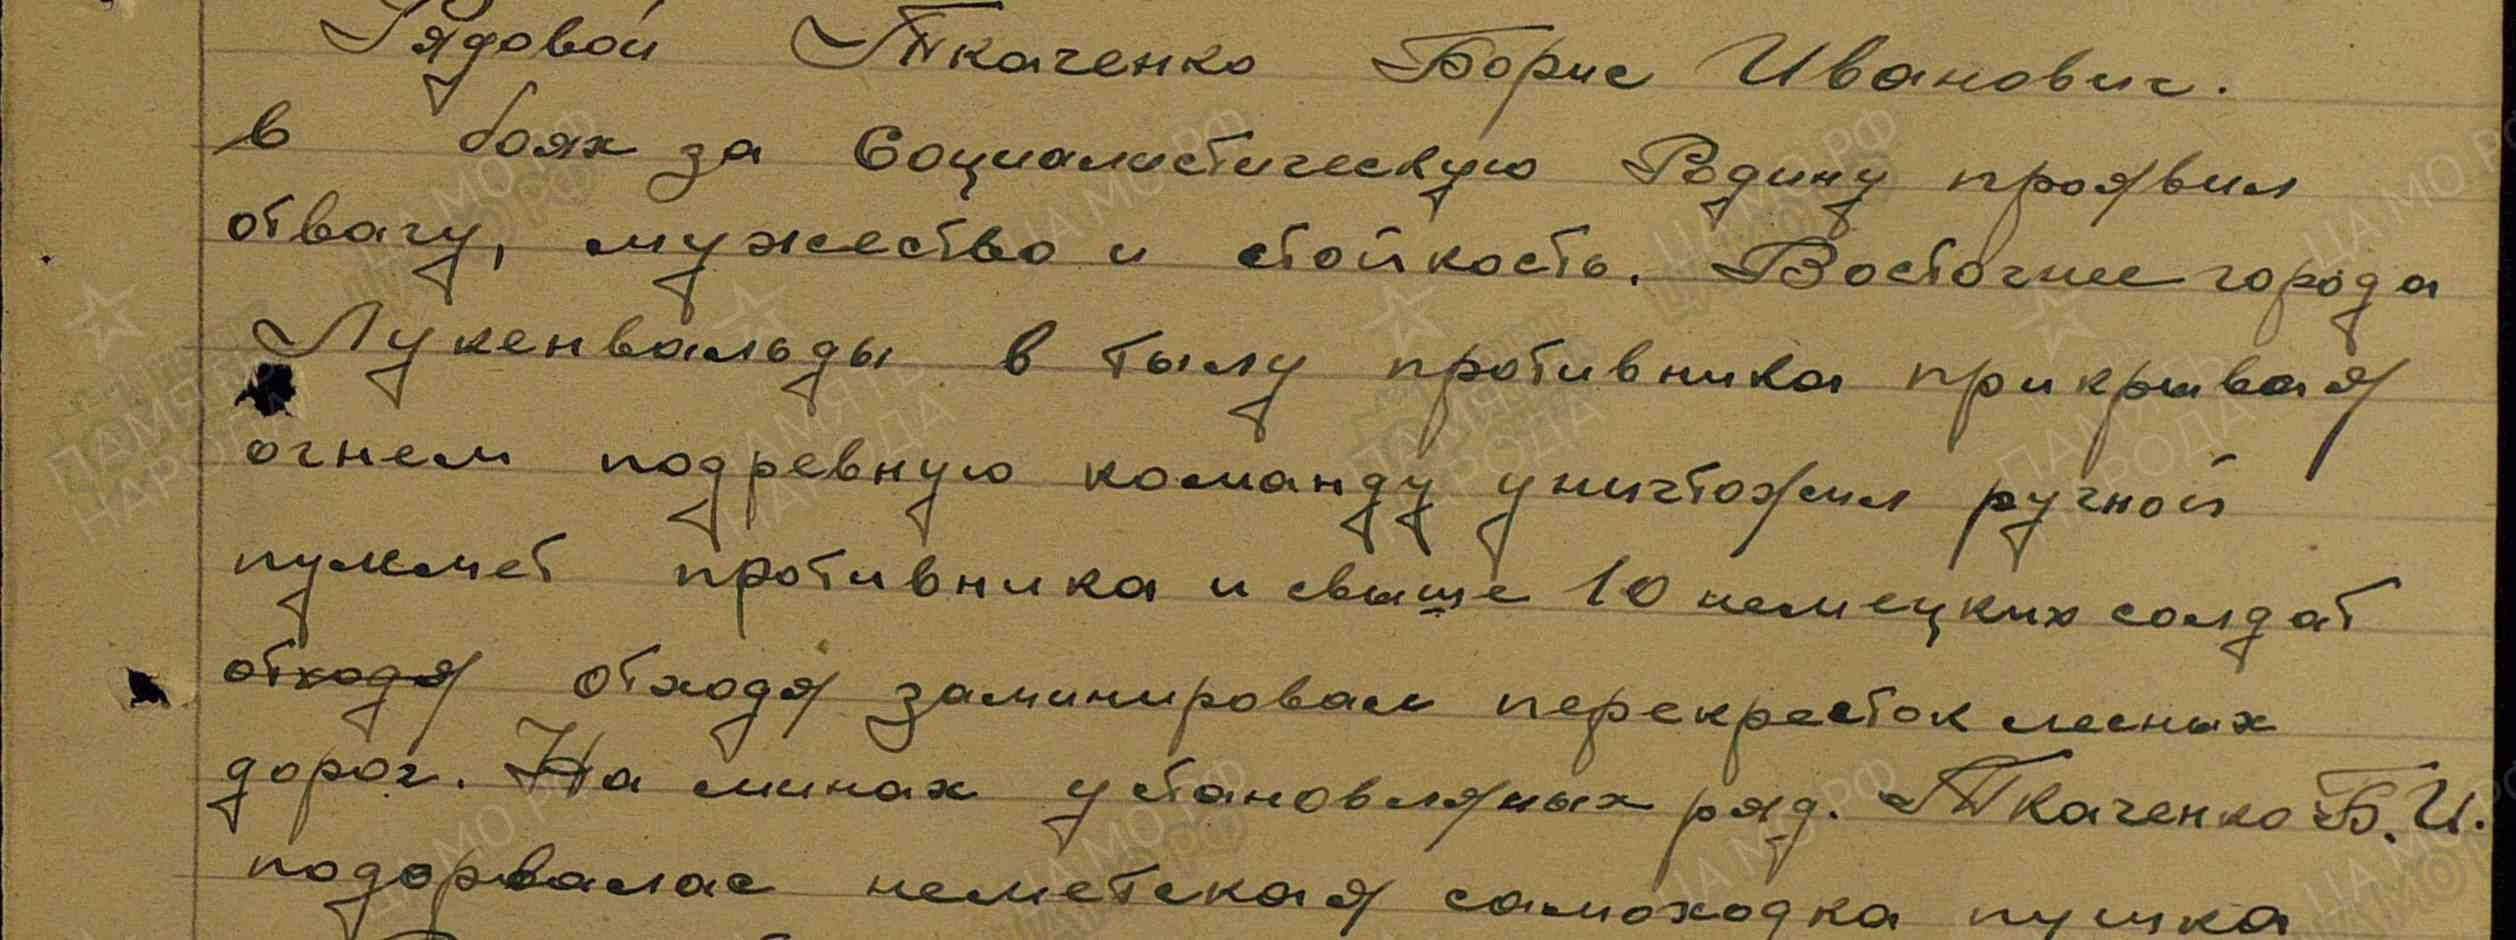 Рядовой Ткаченко Борис Иванович.
в боях за Социалистическую Родину проявил
отвагу, мужество и стойкость. Восточнее города
Лукенвальды в тылу противника прикрывая
огнем подревную команду уничтожил ручной
пулемет противника и свыше 10 немецких солдат
отходя отходя заминировал перекресток лесных
дорог. На минах установляных ряд. Ткаченко Б.И.
подорвалас неметская самоходка пушка